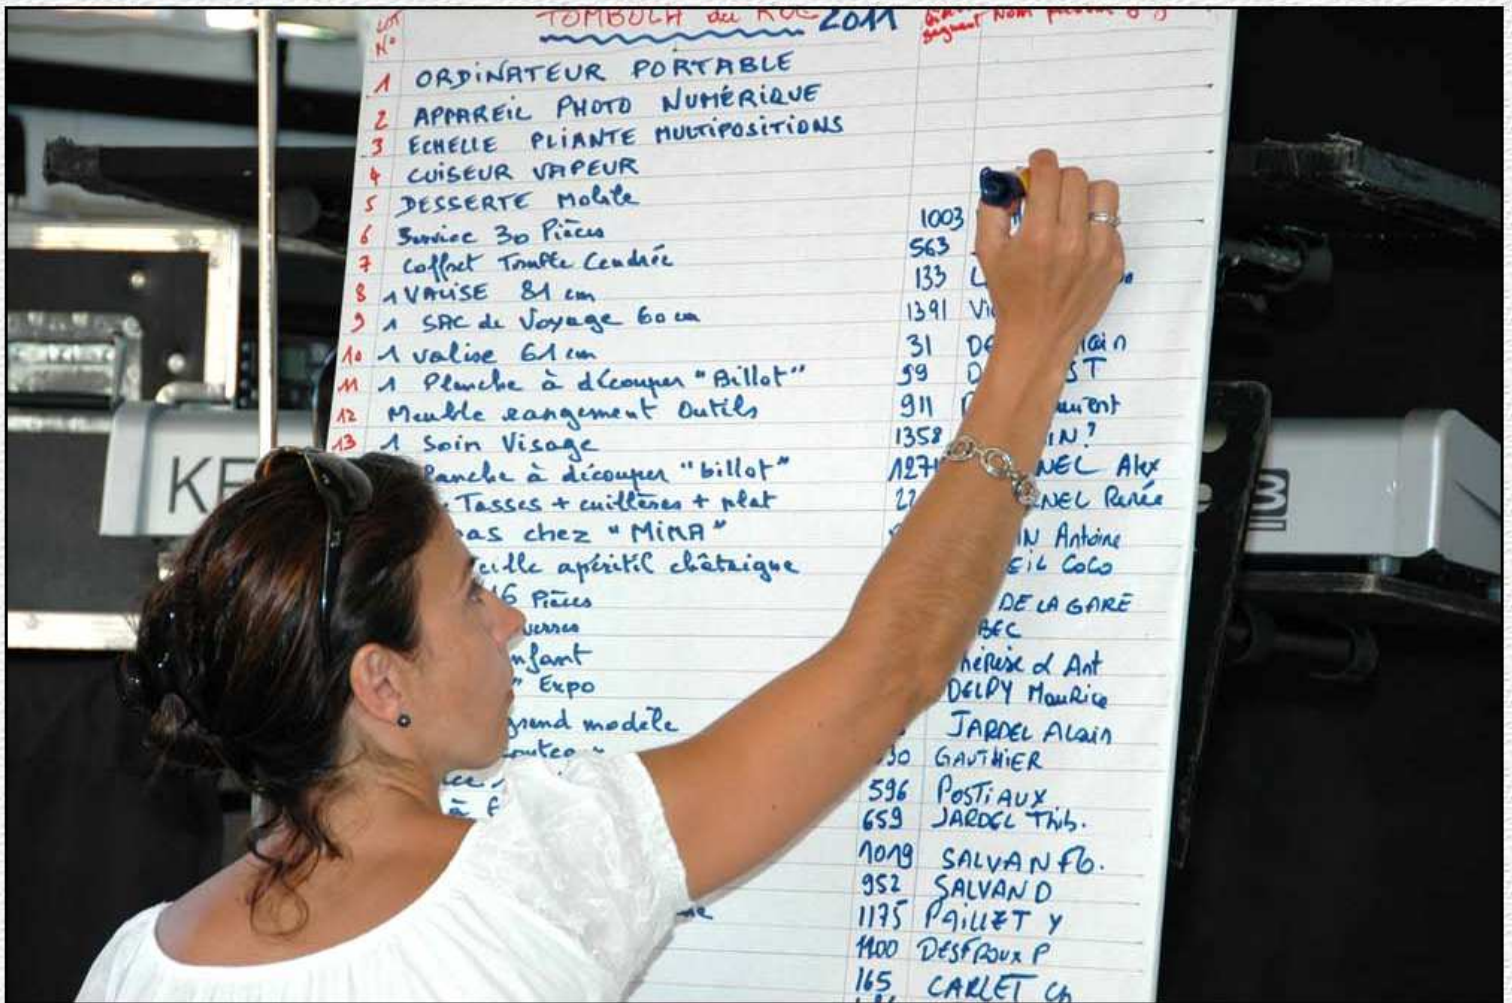 LOT TOMBOLA du ROC 2011
N° gagnant Nom
1 ORDINATEUR PORTABLE
2 APPAREIL PHOTO NUMÉRIQUE
3 ECHELLE PLIANTE MULTIPOSITIONS
4 CUISEUR VAPEUR
5 DESSERTE Mobile
6 Service 30 Pièces 1003
7 Coffret Truffe Cendrée 563
8 1 VALISE 81 cm 133 L
9 1 SAC de Voyage 60 cm 1391 Vi
10 1 valise 61 cm 31 DE ain
11 1 Planche à découper "Billot" 59 D ST
12 Meuble rangement Outils 911 ment
13 1 Soin Visage 1358 IN?
lanche à découper "billot" 127 NEL Alex
Tasses + cuillères + plat 22 NEL Renée
pas chez "MIMA" IN Antoine
eille apéritif châtaigne EIL CoCo
16 Pièces DE LA GARE
verses BEC
nfant hérèse d Ant
" Expo DELPY Maurice
grand modèle JARDEL Alain
30 GAUTHIER
596 POSTIAUX
à 659 JARDEL Thib.
1019 SALVAN Flo.
952 SALVAN D
1175 PAILLET Y
1100 DESFROUX P
165 CARLET Ch
KE